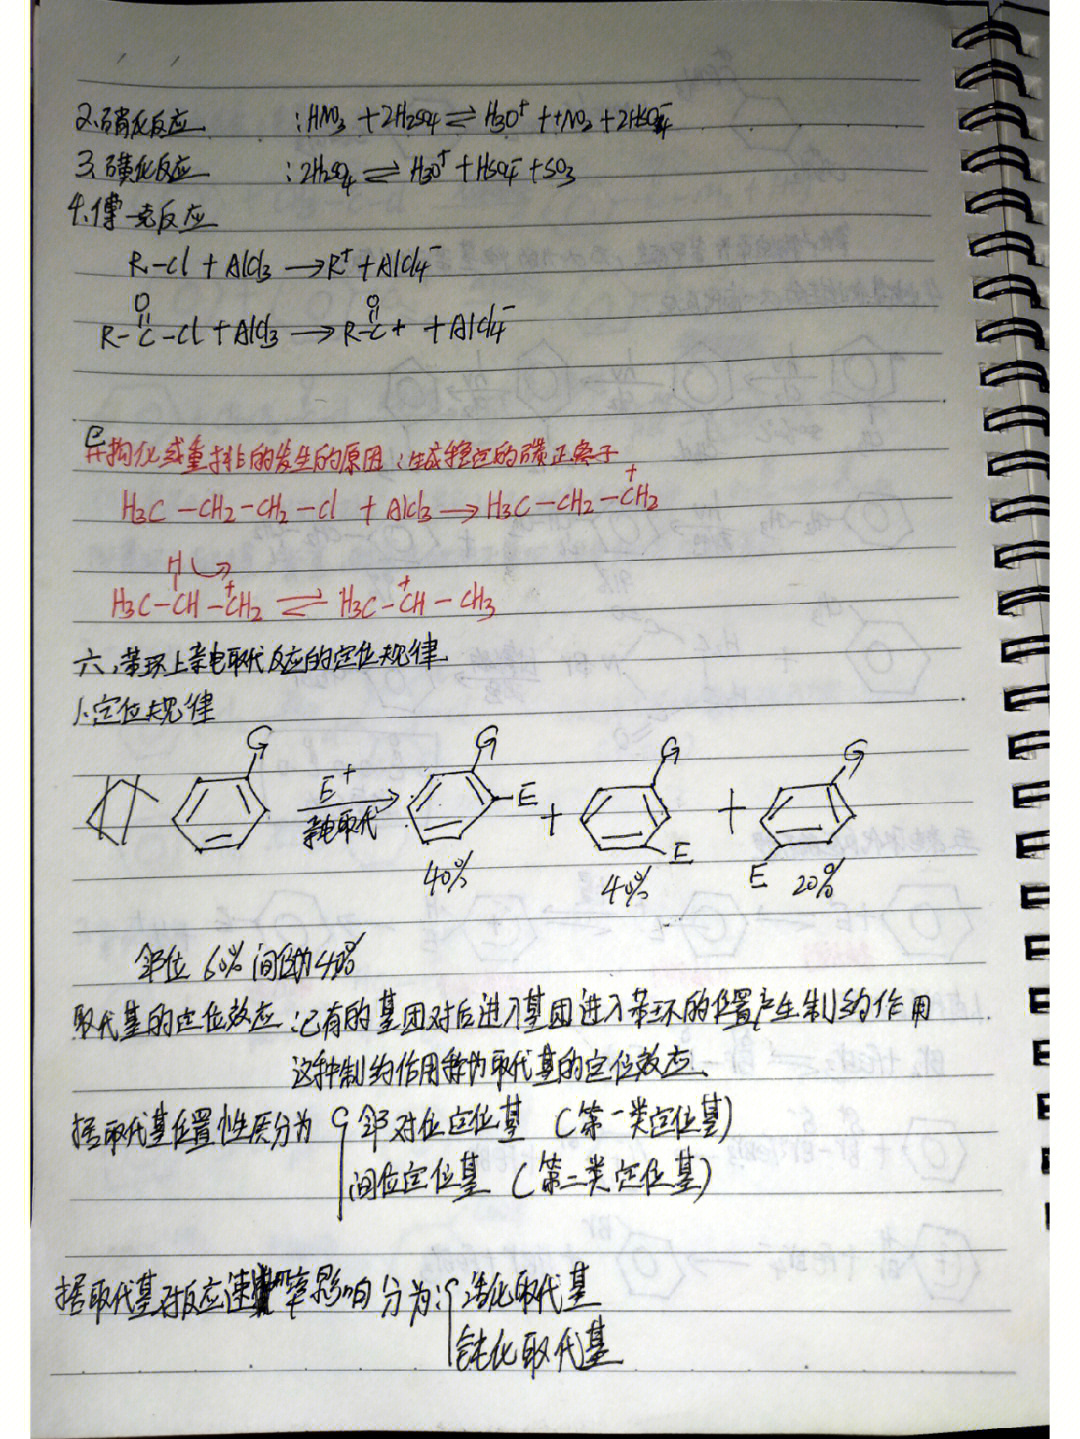 2.硝化反应 :HNO3 + 2H2SO4 ⇌ H3O+ + +NO2 + 2HSO4-
3.磺化反应 :2H2SO4 ⇌ H3O+ + HSO4- + SO3
4.傅一克反应
R-Cl + AlCl3 → R+ + AlCl4-
O O
R-C-Cl + AlCl3 → R-C+ + AlCl4-
异构化或重排的发生的原因:生成稳定的碳正离子
H3C-CH2-CH2-Cl + AlCl3 → H3C-CH2-CH2+
H
H3C-CH-CH2+ ⇌ H3C-CH+-CH3
六、苯环上亲电取代反应的定位规律
1.定位规律
G G G G
E+ E + + 
亲电取代 E E
40% 40% 20%
邻位 60% 间位 40%
取代基的定位效应:已有的基团对后进入基团进入苯环的位置产生制约作用
这种制约作用称为取代基的定位效应.
据取代基位置性质分为 邻对位定位基 (第一类定位基)
间位定位基 (第二类定位基)
据取代基对反应速率影响分为: 活化取代基
钝化取代基